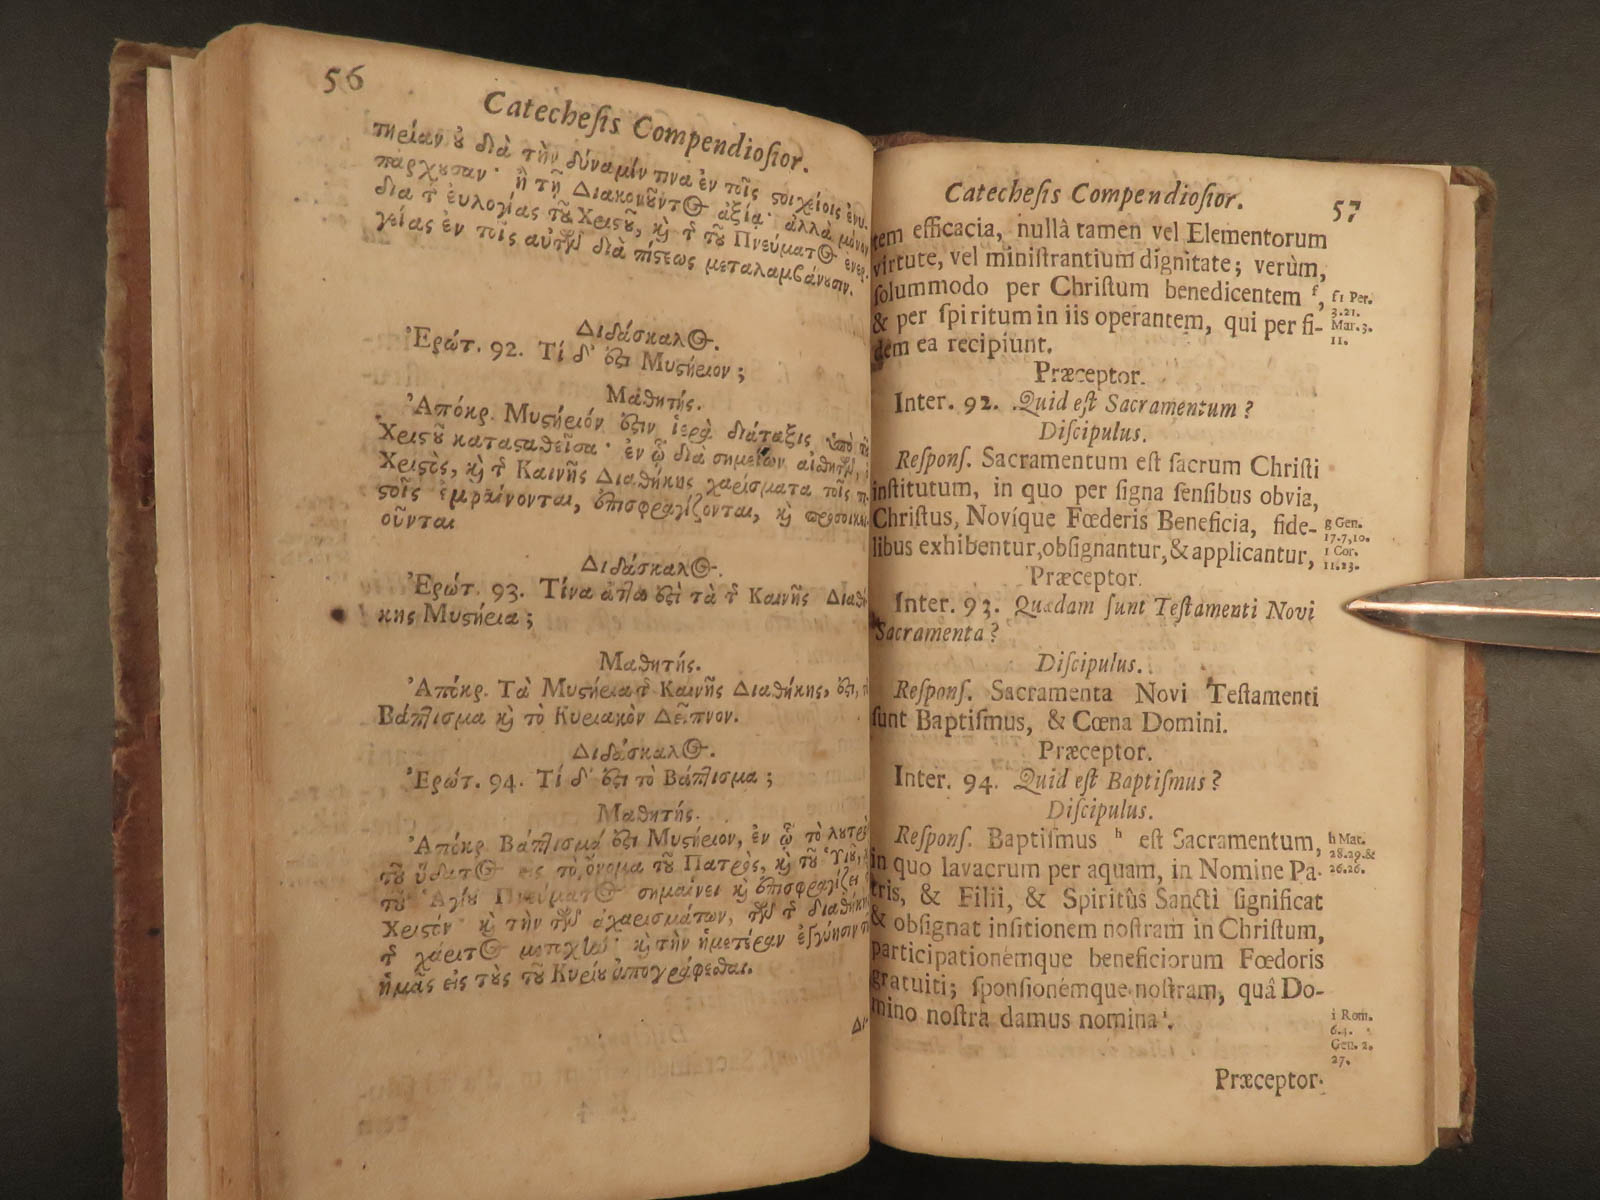 56
Catecheſis Compendioſior.
τηρίαν ȣ διὰ τὴν δύναμίν τινα ἐν τοῖς ϛοιχείοις ἐνυ-
πάρχȣσαν· ἢ τῇ Διακονοῦντος ἀξίᾳ· ἀλλὰ μόνον
διὰ τ εὐλογίας τοῦ Χριϛοῦ, καὶ τ τοῦ Πνεύματος ἐνερ-
γείας ἐν τοῖς αὐτῶν διὰ πίϛεως μεταλαμβάνȣσιν.
Διδάσκαλος.
Ἐρώτ. 92. Τί δ' ἐϛι Μυϛήριον;
Μαθητής.
Ἀπόκρ. Μυϛήριόν ἐϛιν ἱερὰ διάταξις ὑπὸ τȣ
Χριϛοῦ καταϛαθεῖσα· ἐν ᾧ διὰ σημείων αἰσθητῶν,
Χριϛὸς, καὶ τ Καινῆς Διαθήκης χαρίσματα τοῖς π
ϛοῖς ἐμφαίνονται, ἐπισφραγίζονται, καὶ προσοικει
οῦνται
Διδάσκαλος.
Ἐρώτ. 93. Τίνα ἐϛὶ τὰ τ Καινῆς Διαθή
κης Μυϛήρια;
Μαθητής.
Ἀπόκρ. Τὰ Μυϛήρια τ Καινῆς Διαθήκης, ἐϛι, τὸ
Βάπτισμα καὶ τὸ Κυριακὸν Δεῖπνον.
Διδάσκαλος.
Ἐρώτ. 94. Τί δ' ἐϛι τὸ Βάπτισμα;
Μαθητής.
Ἀπόκρ. Βάπτισμά ἐϛι Μυϛήριον, ἐν ᾧ τὸ λυτρὸ
τοῦ ὕδατος εἰς τὸ ὄνομα τοῦ Πατρὸς, καὶ τοῦ Ὑιοῦ,
τοῦ Ἁγίȣ Πνεύματος σημαίνει καὶ ἐπισφραγίζει
Χριϛόν· καὶ τὴν τῶν χαρισμάτων, τῶν τ διαθήκης
τ χάριτος μετοχὴν· καὶ τὴν ἡμετέραν ἐγγύησιν
ἡμᾶς εἰς τοὺς τοῦ Κυρίȣ ἀπογράφεσθαι.
Δι-
Catecheſis Compendioſior.
57
tem efficacia, nullâ tamen vel Elementorum
virtute, vel miniſtrantium dignitate; verùm,
ſolummodo per Chriſtum benedicentem f,
& per ſpiritum in iis operantem, qui per fi-
dem ea recipiunt.
f 1 Per.
3.21.
Mar. 3.
11.
Præceptor.
Inter. 92. Quid eſt Sacramentum?
Diſcipulus.
Reſponſ. Sacramentum eſt ſacrum Chriſti
inſtitutum, in quo per ſigna ſenſibus obvia,
Chriſtus, Novíque Fœderis Beneficia, fide-
libus exhibentur, obſignantur, & applicantur,
g Gen.
17.7,10.
1 Cor.
11.23.
Præceptor.
Inter. 93. Quædam ſunt Teſtamenti Novi
Sacramenta?
Diſcipulus.
Reſponſ. Sacramenta Novi Teſtamenti
ſunt Baptiſmus, & Cœna Domini.
Præceptor.
Inter. 94. Quid eſt Baptiſmus?
Diſcipulus.
Reſponſ. Baptiſmus h eſt Sacramentum,
in quo lavacrum per aquam, in Nomine Pa-
tris, & Filii, & Spiritûs Sancti ſignificat
& obſignat inſitionem noſtram in Chriſtum,
participationémque beneficiorum Fœdoris
gratuiti; ſponſionémque noſtram, quâ Do-
mino noſtra damus nomina i.
h Mat.
28.29.&
26.26.
i Rom.
6.4.
Gen. 2.
27.
Præceptor.